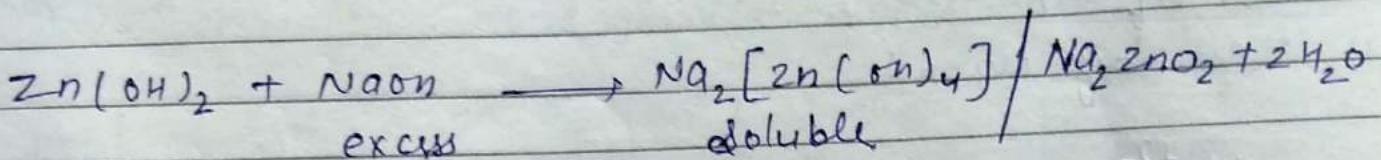 Zn(OH)₂ + NaOH ⟶ Na₂[Zn(OH)₄] / Na₂ZnO₂ + 2H₂O
excess soluble